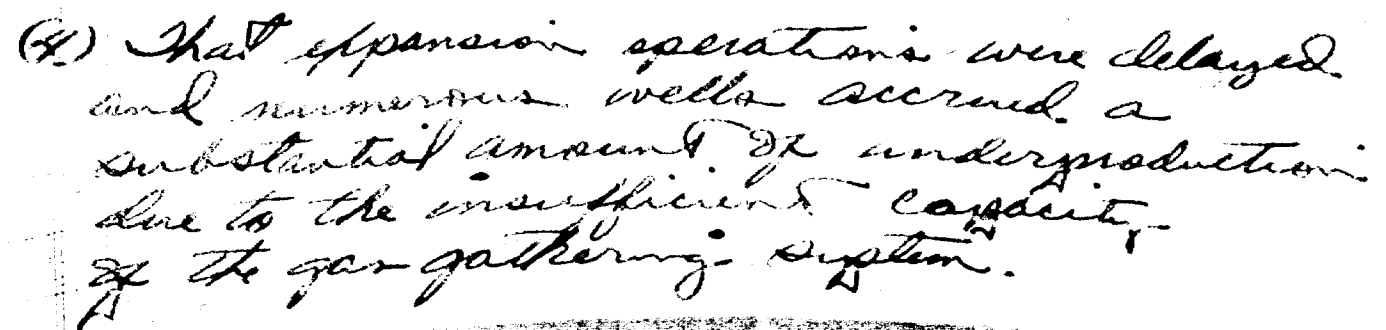 (4.) That expansion operations were delayed
and numerous wells accrued a
substantial amount of underproduction
due to the insufficient capacity
of the gas gathering system.